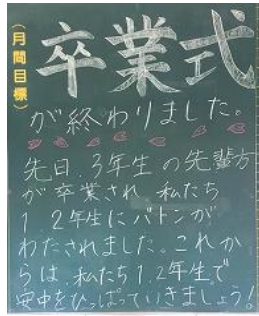 (月間目標)
卒業式
が終わりました。
先日、3年生の先輩方
が卒業され、私たち
1、2年生にバトンが
わたされました。これか
らは、私たち1、2年生で
安中をひっぱっていきましょう!